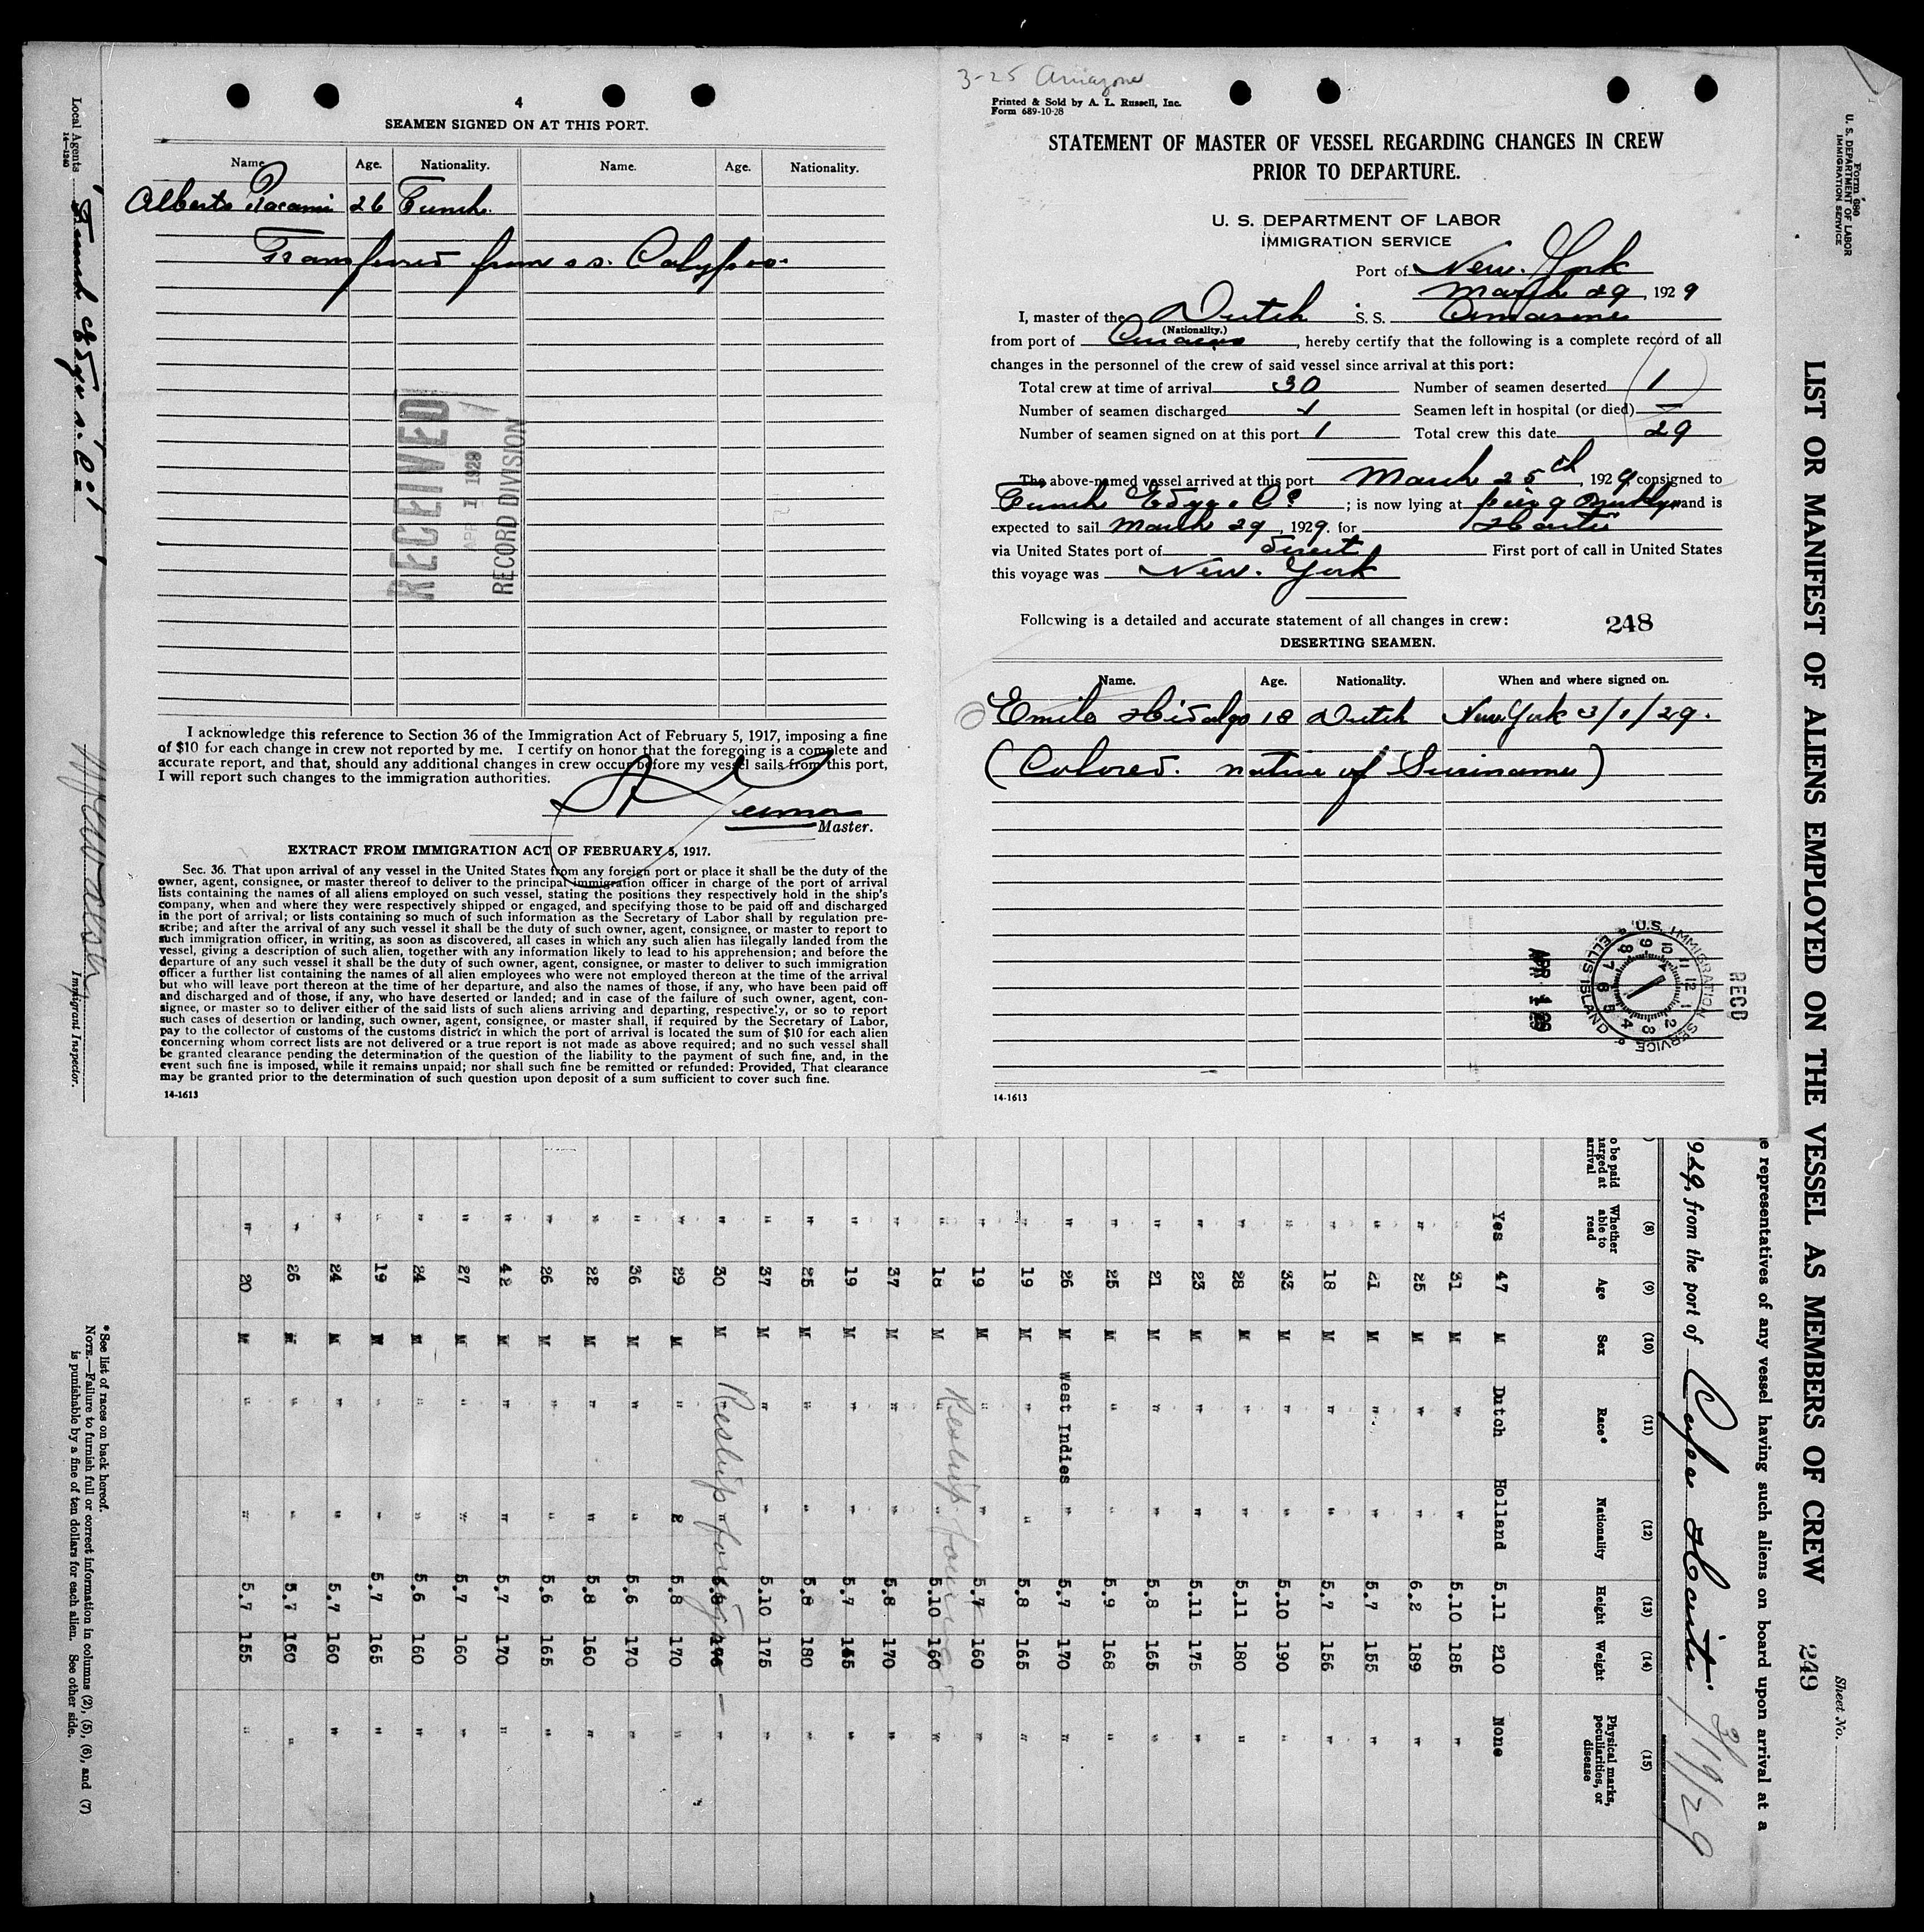 4
SEAMEN SIGNED ON AT THIS PORT.
Name. Age. Nationality. Name. Age. Nationality.
Alberto 26
Transferred from s s. Calypso.
RECEIVED
APR 1 1929
RECORD DIVISION
I acknowledge this reference to Section 36 of the Immigration Act of February 5, 1917, imposing a fine
of $10 for each change in crew not reported by me. I certify on honor that the foregoing is a complete and
accurate report, and that, should any additional changes in crew occur before my vessel sails from this port,
I will report such changes to the immigration authorities.
Master.
EXTRACT FROM IMMIGRATION ACT OF FEBRUARY 5, 1917.
Sec. 36. That upon arrival of any vessel in the United States from any foreign port or place it shall be the duty of the
owner, agent, consignee, or master thereof to deliver to the principal immigration officer in charge of the port of arrival
lists containing the names of all aliens employed on such vessel, stating the positions they respectively hold in the ship's
company, when and where they were respectively shipped or engaged, and specifying those to be paid off and discharged
in the port of arrival; or lists containing so much of such information as the Secretary of Labor shall by regulation pre-
scribe; and after the arrival of any such vessel it shall be the duty of such owner, agent, consignee, or master to report to
such immigration officer, in writing, as soon as discovered, all cases in which any such alien has illegally landed from the
vessel, giving a description of such alien, together with any information likely to lead to his apprehension; and before the
departure of any such vessel it shall be the duty of such owner, agent, consignee, or master to deliver to such immigration
officer a further list containing the names of all alien employees who were not employed thereon at the time of the arrival
but who will leave port thereon at the time of her departure, and also the names of those, if any, who have been paid off
and discharged and of those, if any, who have deserted or landed; and in case of the failure of such owner, agent, con-
signee, or master so to deliver either of the said lists of such aliens arriving and departing, respectively, or so to report
such cases of desertion or landing, such owner, agent, consignee, or master shall, if required by the Secretary of Labor,
pay to the collector of customs of the customs district in which the port of arrival is located the sum of $10 for each alien
concerning whom correct lists are not delivered or a true report is not made as above required; and no such vessel shall
be granted clearance pending the determination of the question of the liability to the payment of such fine, and, in the
event such fine is imposed, while it remains unpaid; nor shall such fine be remitted or refunded: Provided, That clearance
may be granted prior to the determination of such question upon deposit of a sum sufficient to cover such fine.
14-1613
3-25 Amazone
Printed & Sold by A. L. Russell, Inc.
Form 689-10-28
STATEMENT OF MASTER OF VESSEL REGARDING CHANGES IN CREW
PRIOR TO DEPARTURE.
U. S. DEPARTMENT OF LABOR
IMMIGRATION SERVICE
Port of New. York
March 29, 1929
I, master of the Dutch S. S. Amazone
(Nationality.)
from port of Curacao, hereby certify that the following is a complete record of all
changes in the personnel of the crew of said vessel since arrival at this port:
Total crew at time of arrival 30 Number of seamen deserted 1
Number of seamen discharged 1 Seamen left in hospital (or died) —
Number of seamen signed on at this port 1 Total crew this date 29
The above-named vessel arrived at this port March 25th, 1929, consigned to
Funch Edye & Co; is now lying at pier 9 Brooklyn and is
expected to sail March 29, 1929. for Haiti
via United States port of direct First port of call in United States
this voyage was New. York
Following is a detailed and accurate statement of all changes in crew: 248
DESERTING SEAMEN.
Name. Age. Nationality. When and where signed on.
Emilo Hidalgo 18 Dutch New York 3/1/29.
(Colored. native of Suriname)
APR 1 29
U.S. IMMIGRATION SERVICE
ELLIS ISLAND
RECD
14-1613
Form 680
U. S. DEPARTMENT OF LABOR
IMMIGRATION SERVICE
LIST OR MANIFEST OF ALIENS EMPLOYED ON THE VESSEL AS MEMBERS OF CREW 249
Sheet No.
e representatives of any vessel having such aliens on board upon arrival at a
929, from the port of Cape Haiti 3/19/29
o be paid
harged at
arrival
(8) Whether able to read (9) Age (10) Sex (11) Race* (12) Nationality (13) Height (14) Weight (15) Physical marks, peculiarities, or disease
Yes 47 M Dutch Holland 5.11 210 None
" 31 M " " 5.10 185 "
" 25 M " " 6.2 189 "
" 21 M " " 5.7 155 "
" 18 M " " 5.7 156 "
" 33 M " " 5.10 190 "
" 28 M " " 5.11 180 "
" 23 M " " 5.11 175 "
" 21 M " " 5.8 165 "
" 25 M " " 5.9 168 "
" 26 M West Indies " 5.7 170 "
" 19 M " " 5.8 165 "
" 19 M " " 5.7 160 "
" 18 M " " 5.10 160 "
Reship
" 37 M " " 5.8 170 "
" 19 M " " 5.7 145 "
" 25 M " " 5.8 180 "
" 37 M " " 5.10 175 "
" 30 M " "
Reship foreign
" 29 M " " 5.8 170 "
" 36 M " " 5.6 170 "
" 22 M " " 5.8 160 "
" 26 M " " 5.6 165 "
" 42 M " " 5.7 170 "
" 27 M " " 5.7 160 "
" 24 M " " 5.6 160 "
" 19 M " " 5.7 165 "
" 24 M " " 5.7 160 "
" 26 M " " 5.7 160 "
" 20 M " " 5.7 155 "
*See list of races on back hereof.
NOTE.—Failure to furnish full or correct information in columns (2), (5), (6), and (7)
is punishable by a fine of ten dollars for each alien. See other side.
Local Agents Funch Edye & Co.
14—1240
Immigrant Inspector.